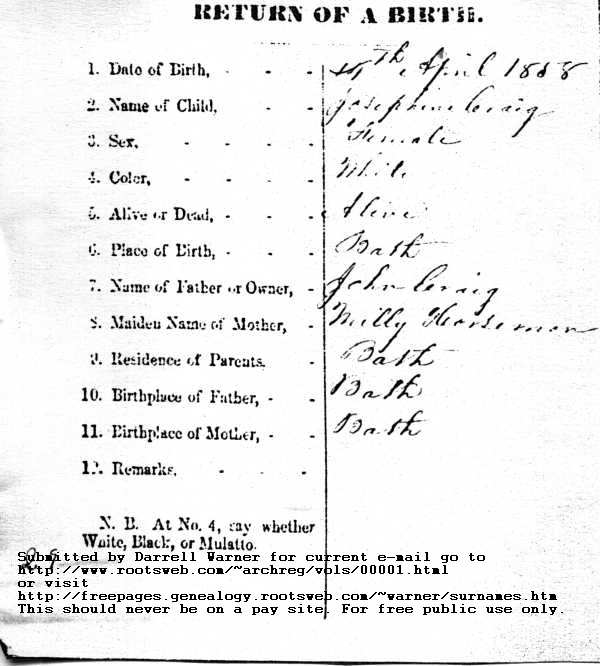 RETURN OF A BIRTH.
1. Date of Birth, - - - th April 1858
2. Name of Child, - - Josephine Craig
3. Sex, - - - - Female
4. Color, - - - - White
5. Alive or Dead, - - - Alive
6. Place of Birth, - - - Bath
7. Name of Father or Owner, - John Craig
8. Maiden Name of Mother, - Milly Horseman
9. Residence of Parents. - Bath
10. Birthplace of Father, - - Bath
11. Birthplace of Mother, - - Bath
12. Remarks. - - -
N. B. At No. 4, say whether
White, Black, or Mulatto.
Submitted by Darrell Warner for current e-mail go to
http://www.rootsweb.com/~archreg/vols/00001.html
or visit
http://freepages.genealogy.rootsweb.com/~warner/surnames.htm
This should never be on a pay site. For free public use only.